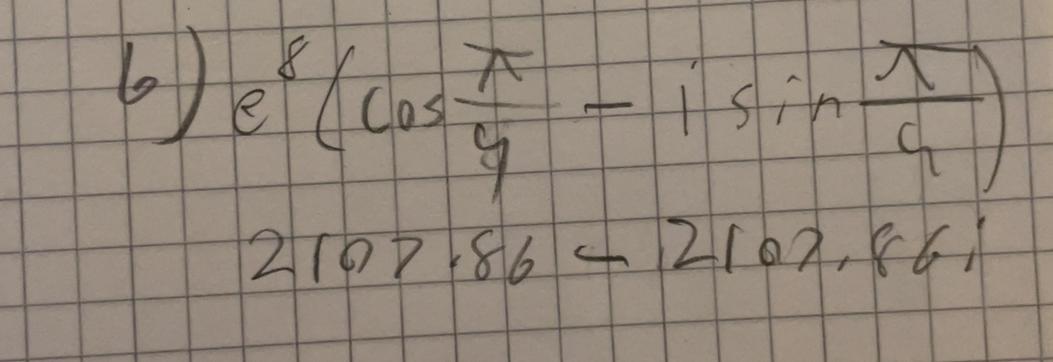 b) e⁸(cos π/4 - i sin π/4)
2107.86 - 2107.86i